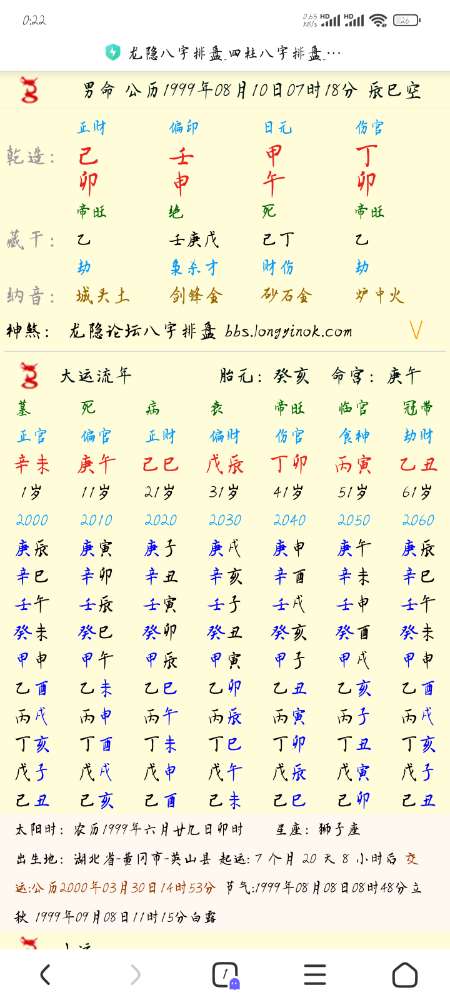 0:22 0.65 KB/s HD HD 26
龙隐八字排盘_四柱八字排盘_…
男命 公历1999年08月10日07时18分 辰巳空
正财 偏印 日元 伤官
乾造: 己 壬 甲 丁
卯 申 午 卯
帝旺 绝 死 帝旺
藏干: 乙 壬庚戊 己丁 乙
劫 枭杀才 财伤 劫
纳音: 城头土 剑锋金 砂石金 炉中火
神煞: 龙隐论坛八字排盘 bbs.longyinok.com V
大运流年 胎元: 癸亥 命宫: 庚午
墓 死 病 衰 帝旺 临官 冠带
正官 偏官 正财 偏财 伤官 食神 劫财
辛未 庚午 己巳 戊辰 丁卯 丙寅 乙丑
1岁 11岁 21岁 31岁 41岁 51岁 61岁
2000 2010 2020 2030 2040 2050 2060
庚辰 庚寅 庚子 庚戌 庚申 庚午 庚辰
辛巳 辛卯 辛丑 辛亥 辛酉 辛未 辛巳
壬午 壬辰 壬寅 壬子 壬戌 壬申 壬午
癸未 癸巳 癸卯 癸丑 癸亥 癸酉 癸未
甲申 甲午 甲辰 甲寅 甲子 甲戌 甲申
乙酉 乙未 乙巳 乙卯 乙丑 乙亥 乙酉
丙戌 丙申 丙午 丙辰 丙寅 丙子 丙戌
丁亥 丁酉 丁未 丁巳 丁卯 丁丑 丁亥
戊子 戊戌 戊申 戊午 戊辰 戊寅 戊子
己丑 己亥 己酉 己未 己巳 己卯 己丑
太阳时: 农历1999年六月廿九日卯时 星座: 狮子座
出生地: 湖北省-黄冈市-英山县 起运: 7 个月 20 天 8 小时后 交
运:公历2000年03月30日14时53分 节气:1999年08月08日08时48分立
秋 1999年09月08日11时15分白露
1